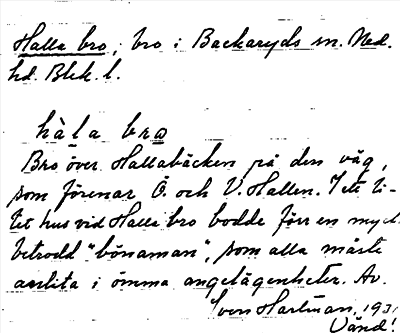 Halla bro, bro i Backaryds sn. Med.
hd. Blek. l.
hàla bro
Bro över Hallabäcken på den väg,
som förenar Ö. och V. Hallen. I ett li-
tet hus vid Halla bro bodde förr en myc.
betrodd "bönaman", som alla måste
anlita i ömma angelägenheter. Av
Sven Hartman, 1931
Vänd!